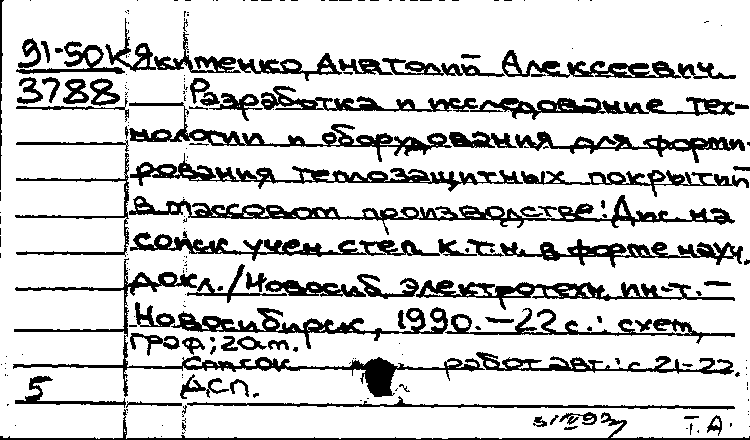 91-50К Якименко, Анатолий Алексеевич.
3788 Разработка и исследование тех-
нологии и оборудования для форми-
рования теплозащитных покрытий
в массовом производстве: Дис на
соиск учен степ к.т.н. в форме науч.
докл./Новосиб электротехн. ин-т.—
Новосибирск, 1990.—22 с.: схем,
граф; 20 см.
Список работ авт.: с 21-22.
5 ДСП.
Т.А.